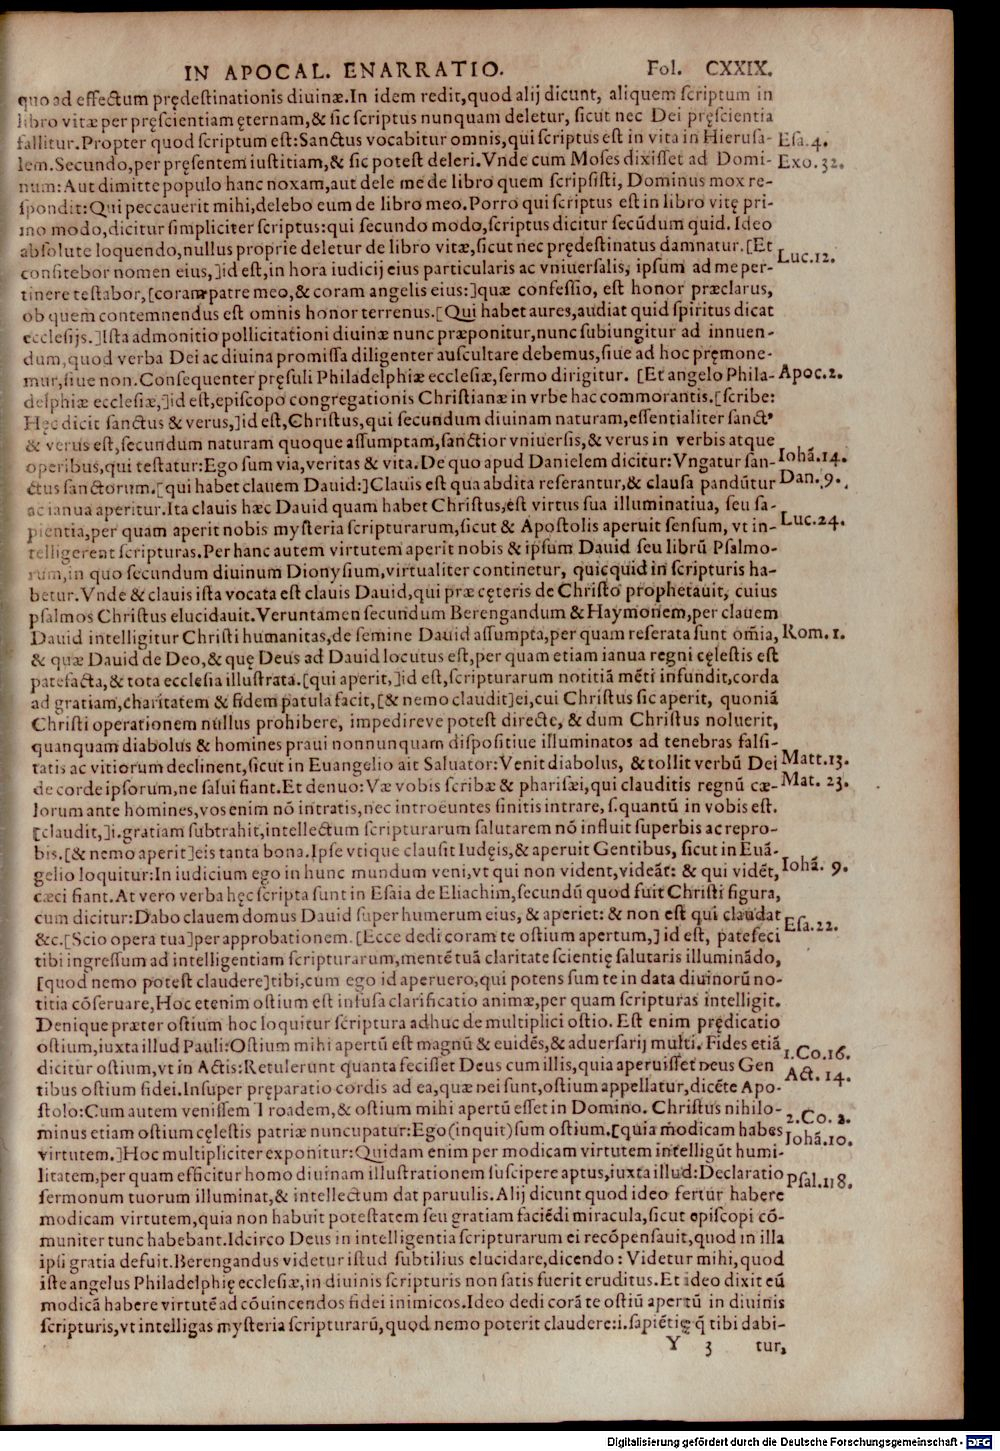 IN APOCAL. ENARRATIO. Fol. CXXIX.
quo ad effectum prędestinationis diuinæ. In idem redit, quod alij dicunt, aliquem scriptum in
libro vitæ per pręscientiam ęternam, & sic scriptus nunquam deletur, sicut nec Dei pręscientia
fallitur. Propter quod scriptum est: Sanctus vocabitur omnis, qui scriptus est in vita in Hierusa- Esa. 4.
lem. Secundo, per pręsentem iustitiam, & sic potest deleri. Vnde cum Moses dixisset ad Domi- Exo. 32.
num: Aut dimitte populo hanc noxam, aut dele me de libro quem scripsisti, Dominus mox re-
spondit: Qui peccauerit mihi, delebo eum de libro meo. Porro qui scriptus est in libro vitę pri-
mo modo, dicitur simpliciter scriptus: qui secundo modo, scriptus dicitur secūdum quid. Ideo
absolute loquendo, nullus proprie deletur de libro vitæ, sicut nec prędestinatus damnatur. [Et
confitebor nomen eius,] id est, in hora iudicij eius particularis ac vniuersalis, ipsum ad me per- Luc. 12.
tinere testabor, [coram patre meo, & coram angelis eius:] quæ confessio, est honor præclarus,
ob quem contemnendus est omnis honor terrenus. [Qui habet aures, audiat quid spiritus dicat
ecclesijs.] Ista admonitio pollicitationi diuinæ nunc præponitur, nunc subiungitur ad innuen-
dum, quod verba Dei ac diuina promissa diligenter auscultare debemus, siue ad hoc pręmone-
mur, siue non. Consequenter pręsuli Philadelphiæ ecclesiæ, sermo dirigitur. [Et angelo Phila- Apoc. 2.
delphiæ ecclesiæ,] id est, episcopo congregationis Christianæ in vrbe hac commorantis. [scribe:
Hęc dicit sanctus & verus,] id est, Christus, qui secundum diuinam naturam, essentialiter sanctꝰ
& verus est, secundum naturam quoque assumptam, sanctior vniuersis, & verus in verbis atque
operibus, qui testatur: Ego sum via, veritas & vita. De quo apud Danielem dicitur: Vngatur san- Iohā. 14.
ctus sanctorum. [qui habet clauem Dauid:] Clauis est qua abdita reserantur, & clausa pandūtur Dan. 9.
ac ianua aperitur. Ita clauis hæc Dauid quam habet Christus, est virtus sua illuminatiua, seu sa-
pientia, per quam aperit nobis mysteria scripturarum, sicut & Apostolis aperuit sensum, vt in- Luc. 24.
telligerent scripturas. Per hanc autem virtutem aperit nobis & ipsum Dauid seu librū Psalmo-
rum, in quo secundum diuinum Dionysium, virtualiter continetur, quicquid in scripturis ha-
betur. Vnde & clauis ista vocata est clauis Dauid, qui præ cęteris de Christo prophetauit, cuius
psalmos Christus elucidauit. Veruntamen secundum Berengandum & Haymonem, per clauem
Dauid intelligitur Christi humanitas, de semine Dauid assumpta, per quam reserata sunt om̄ia, Rom. 1.
& quæ Dauid de Deo, & quę Deus ad Dauid locutus est, per quam etiam ianua regni cęlestis est
patefacta, & tota ecclesia illustrata. [qui aperit,] id est, scripturarum notitiā mēti infundit, corda
ad gratiam, charitatem & fidem patula facit, [& nemo claudit] ei, cui Christus sic aperit, quoniā
Christi operationem nullus prohibere, impedireve potest directe, & dum Christus noluerit,
quanquam diabolus & homines praui nonnunquam dispositiue illuminatos ad tenebras falsi-
tatis ac vitiorum declinent, sicut in Euangelio ait Saluator: Venit diabolus, & tollit verbū Dei Matt. 13.
de corde ipsorum, ne salui fiant. Et denuo: Væ vobis scribæ & pharisæi, qui clauditis regnū cæ- Mat. 23.
lorum ante homines, vos enim nō intratis, nec introeuntes sinitis intrare, s. quantū in vobis est.
[claudit,] i. gratiam subtrahit, intellectum scripturarum salutarem nō influit superbis ac repro-
bis. [& nemo aperit] eis tanta bona. Ipse vtique clausit Iudęis, & aperuit Gentibus, sicut in Euā-
gelio loquitur: In iudicium ego in hunc mundum veni, vt qui non vident, videāt: & qui vidēt, Iohā. 9.
cæci fiant. At vero verba hęc scripta sunt in Esaia de Eliachim, secundū quod fuit Christi figura,
cum dicitur: Dabo clauem domus Dauid super humerum eius, & aperiet: & non est qui claudat Esa. 22.
&c. [Scio opera tua] per approbationem. [Ecce dedi coram te ostium apertum,] id est, patefeci
tibi ingressum ad intelligentiam scripturarum, mentē tuā claritate scientię salutaris illuminādo,
[quod nemo potest claudere] tibi, cum ego id aperuero, qui potens sum te in data diuinorū no-
titia cōseruare, Hoc etenim ostium est infusa clarificatio animæ, per quam scripturas intelligit.
Denique præter ostium hoc loquitur scriptura adhuc de multiplici ostio. Est enim prędicatio
ostium, iuxta illud Pauli: Ostium mihi apertū est magnū & euidēs, & aduersarij multi. Fides etiā 1. Co. 16.
dicitur ostium, vt in Actis: Retulerunt quanta fecisset Deus cum illis, quia aperuisset Deus Gen Act. 14.
tibus ostium fidei. Insuper pręparatio cordis ad ea, quæ Dei sunt, ostium appellatur, dicēte Apo-
stolo: Cum autem venissem Troadem, & ostium mihi apertū esset in Domino. Christus nihilo- 2. Co. 2.
minus etiam ostium cęlestis patriæ nuncupatur: Ego (inquit) sum ostium. [quia modicam habes Iohā. 10.
virtutem.] Hoc multipliciter exponitur: Quidam enim per modicam virtutem intelligūt humi-
litatem, per quam efficitur homo diuinam illustrationem suscipere aptus, iuxta illud: Declaratio Psal. 118.
sermonum tuorum illuminat, & intellectum dat paruulis. Alij dicunt quod ideo fertur habere
modicam virtutem, quia non habuit potestatem seu gratiam faciēdi miracula, sicut episcopi cō-
muniter tunc habebant. Idcirco Deus in intelligentia scripturarum ei recōpensauit, quod in illa
ipsi gratia defuit. Berengandus videtur istud subtilius elucidare, dicendo: Videtur mihi, quod
iste angelus Philadelphię ecclesiæ, in diuinis scripturis non satis fuerit eruditus. Et ideo dixit eū
modicā habere virtutē ad cōuincendos fidei inimicos. Ideo dedi corā te ostiū apertū in diuinis
scripturis, vt intelligas mysteria scripturarū, quod nemo poterit claudere: i. sapiētię q̄ tibi dabi-
Y 3 tur,
Digitalisierung gefördert durch die Deutsche Forschungsgemeinschaft - DFG